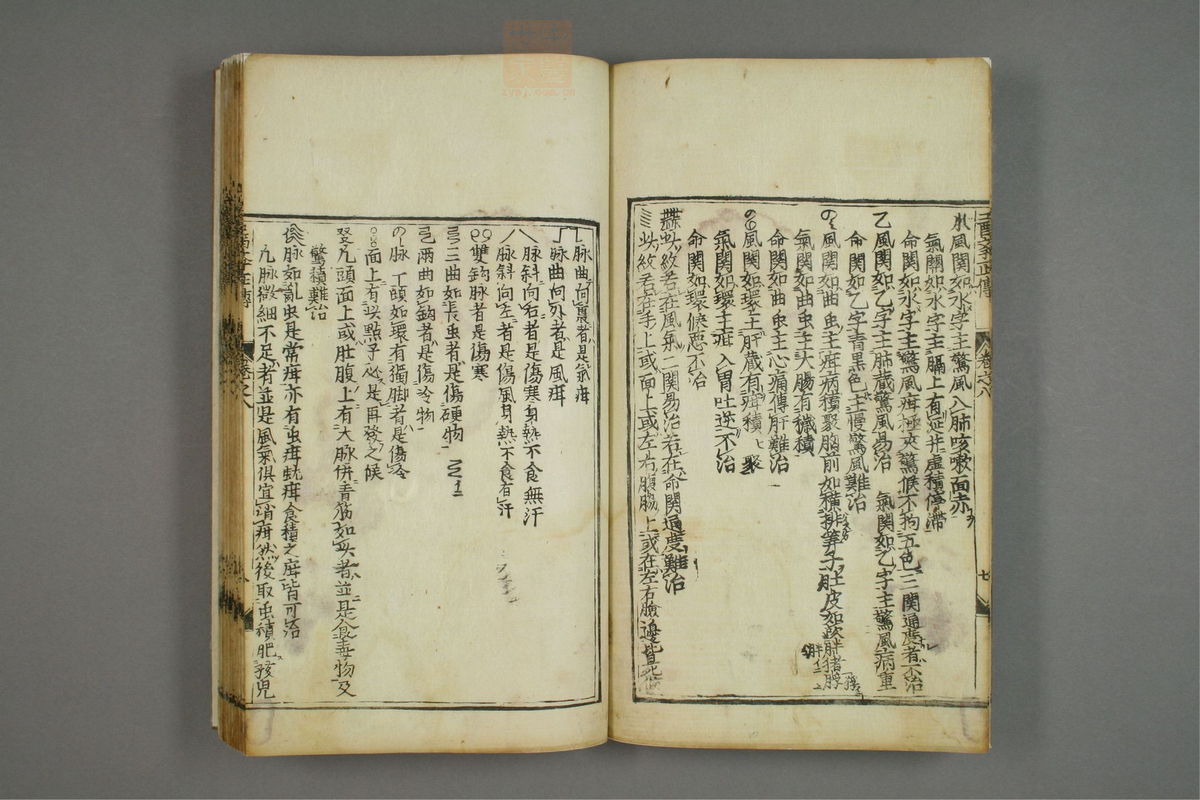 水風關如水字主驚風入肺咳嗽面赤
氣關如水字主膈上有涎并虛積停滯
命關如水字主驚風疳極夾驚候不拘五色三關通度者不治
乙風關如乙字主肺藏驚風易治 氣關如乙字主驚風病重
命關如乙字青黑色主慢驚風難治
風關如曲虫主疳病積聚胸前如橫排筭子肚皮如吹胖猪脬
氣關如曲虫主大腸有穢積
命關如曲虫主心痛傳肝難治
風關如環主肝藏有疳積聚
氣關如環主疳入胃吐逆不治
命關如環候惡不治
此紋若在風氣二關易治若在命關通度難治
此紋若在手上或面上或左右腹脇上或在左右臉邊皆
卷之八
七
脉曲向裏者是氣疳
脉曲向外者是風疳
脉斜向右者是傷寒身熱不食無汗
脉斜向左者是傷風身熱不食有汗
雙鈎脉者是傷寒
三曲如長虫者是傷硬物
兩曲如鈎者是傷冷物
脉 頭如環有獨脚者是傷冷
面上有此點子必是再發之候
凡頭面上或肚腹上有大脉併青筋如此者並是食毒物及
驚積難治
脉如亂虫是常疳亦有虫疳蚘疳食積之疳皆可治
凡脉微細不足者並是風氣俱宜消疳然後取虫積肥孩兒
卷之八
八